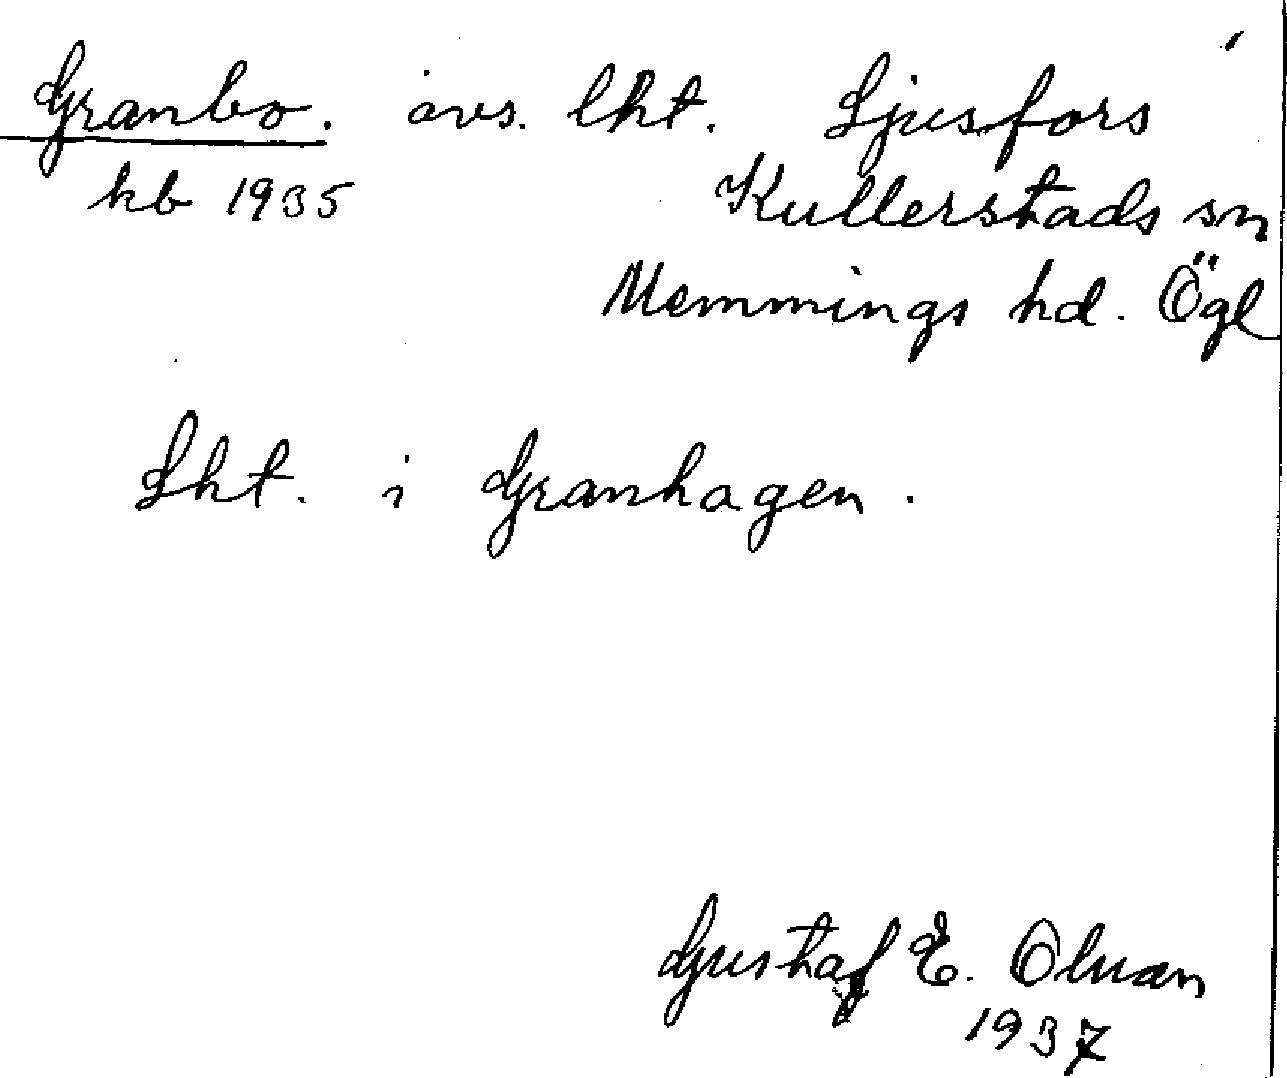 Granbo. avs. lht. Ljusfors
kb 1935 Kullerstads sn
Memmings hd. Ögl
Lht. i Granhagen.
Gustaf E. Olson
1937